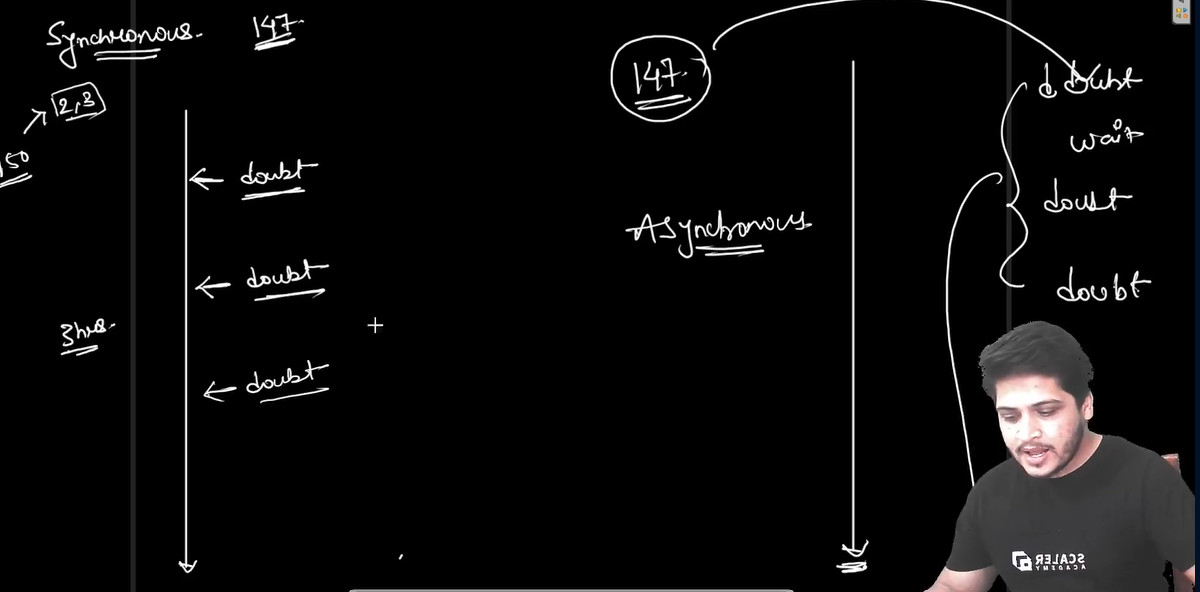 Synchronous. 147.
2,3
150
doubt
doubt
3hrs.
doubt
147.
Asynchronous
doubt
wait
doubt
doubt
SCALER
ACADEMY